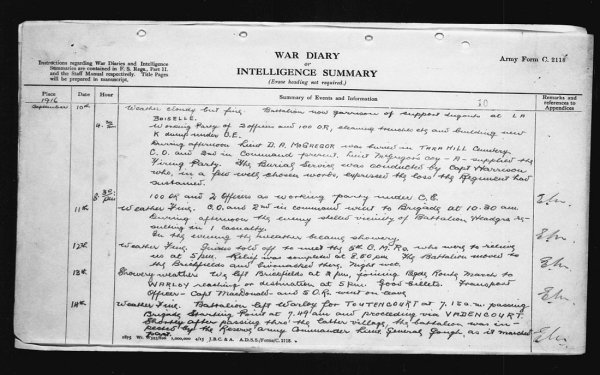 WAR DIARY
or
INTELLIGENCE SUMMARY
(Erase heading not required.)
Army Form C. 2118
Instructions regarding War Diaries and Intelligence
Summaries are contained in F. S. Regs., Part II.
and the Staff Manual respectively. Title Pages
will be prepared in manuscript.
Place Date Hour Summary of Events and Information Remarks and references to Appendices
1916
September 10th Weather cloudy but fine. Battalion now garrison of support dugouts at LA
BOISELLE.
4. pm Working Party of 2 officers and 100 O.R. clearing trench etc and building new
K dump under O.E.
During afternoon Lieut D.A. McGREGOR was buried in TARA HILL Cemetery.
C.O. and 2nd in Command present. Lieut McGregor's coy - A - supplied the
Firing Party. The Burial Service was conducted by Capt Harrison
who, in a few well chosen words, expressed the loss the Regiment had
sustained.
8.30 pm 100 O.R and 2 Officers as working party under C.E.
11th Weather Fine. C.O. and 2nd in command went to Brigade at 10.30 am
During afternoon the enemy shelled vicinity of Battalion Headqrs re-
sulting in 1 casualty.
In the evening the weather became showery.
12th Weather Fine. Guides told off to meet the 5th C.M.R. who were to reliev
us at 5 pm. Relief was completed at 8.50 pm. The Battalion moved to
the Brickfields and bivouacked there, Night wet.
13th Showery weather. We left Brickfields at 2 pm, joining Bgde Route March to
WARLOY reaching destination at 5 pm. Good billets. Transport
Officer - Capt MacDonald - and 5 O.R. went on leave
14th Weather Fine. Battalion left Warloy for TOUTENCOURT at 7.15 a.m. passing
Brigade Starting Point at 7.49 am and proceeding via VADENCOURT.
Shortly after passing thro the latter village, the battalion was in-
spected by the Reserve Army Commander Lieut. General Gough, as it marched
past.
1875 Wt. W593/826 1,000,000 4/15 J.B.C. & A. A.D.S.S./Forms/C. 2118.